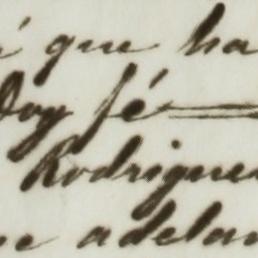 á que ha
Doy fé
Rodrigue
ne adelan